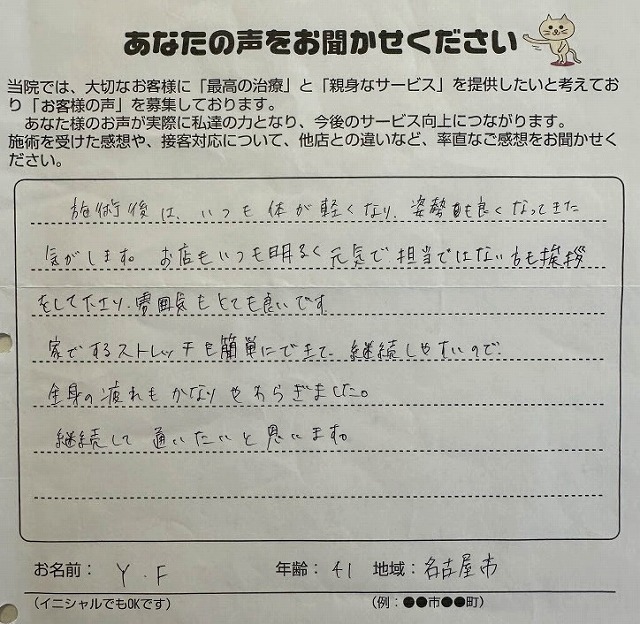 あなたの声をお聞かせください
当院では、大切なお客様に「最高の治療」と「親身なサービス」を提供したいと考えてお
り「お客様の声」を募集しております。
あなた様のお声が実際に私達の力となり、今後のサービス向上につながります。
施術を受けた感想や、接客対応について、他店との違いなど、率直なご感想をお聞かせく
ださい。
施術後は、いつも体が軽くなり、姿勢も良くなってきた
気がします。お店もいつも明るく元気で担当ではない方も挨拶
をして下さり、雰囲気もとても良いです。
家でするストレッチも簡単にできて、継続しやすいので、
全身の疲れもかなりやわらぎました。
継続して通いたいと思います。
お名前： Y.F 年齢： 41 地域： 名古屋市
（イニシャルでもOKです） （例：●●市●●町）